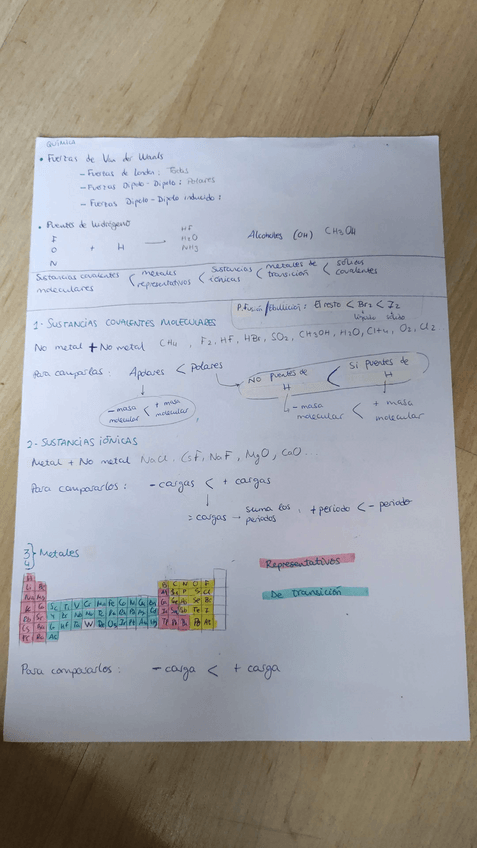 QUÍMICA
• Fuerzas de Van der Waals
- Fuerzas de London: Todas
- Fuerzas Dipolo-Dipolo: Polares
- Fuerzas Dipolo-Dipolo inducido:
• Puentes de hidrógeno
F
O + H → HF H2O NH3 Alcoholes (OH) CH3OH
N
Sustancias covalentes moleculares < metales representativos < Sustancias iónicas < metales de transición < sólidos covalentes
P.Fusión/Ebullición: El resto < Br2 < I2
líquido sólido
1- SUSTANCIAS COVALENTES MOLECULARES
No metal + No metal CH4, F2, HF, HBr, SO2, CH3OH, H2O, CH4, O2, Cl2
Para compararlas: Apolares < polares
No puentes de H < Si puentes de H
- masa molecular < + masa molecular
- masa molecular < + masa molecular
2- SUSTANCIAS IÓNICAS
Metal + No metal NaCl, CsF, NaF, MgO, CaO...
Para compararlos: - cargas < + cargas
= cargas → Suma los periodos: + periodo < - periodo
3
4 } - Metales
Representativos
De Transición
Para compararlos: - carga < + carga